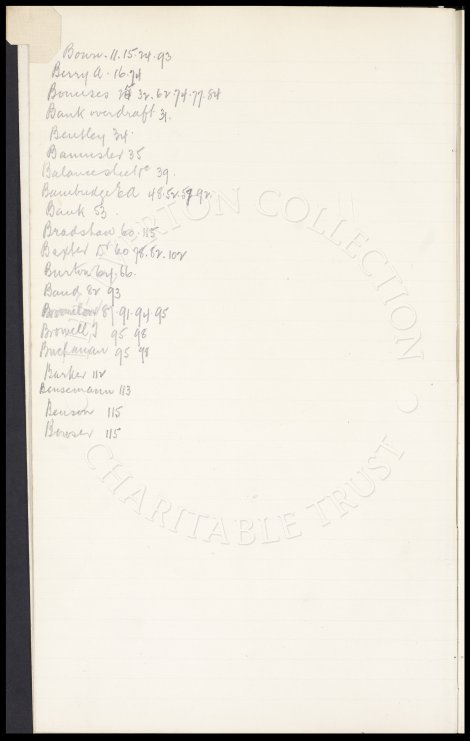 Bown. 11. 15. 24. 93
Berry A. 16. 74
Bonuses 32. 62. 74. 77. 84
Bank overdraft 31.
Bentley 34.
Bannister 35
Balance sheet 39.
Bambridge Ed 48. 52. 92.
Bank 53.
Bradshaw 60. 115
Baxter Dr 60. 78. 82. 102
Burton 64. 66.
Band 82 93
91. 94. 95
Browell J 95 98
Buchanan 95 98
Barker 112
Bensemann 113
Benson 115
Bowser 115
COLLECTION
CHARITABLE TRUST